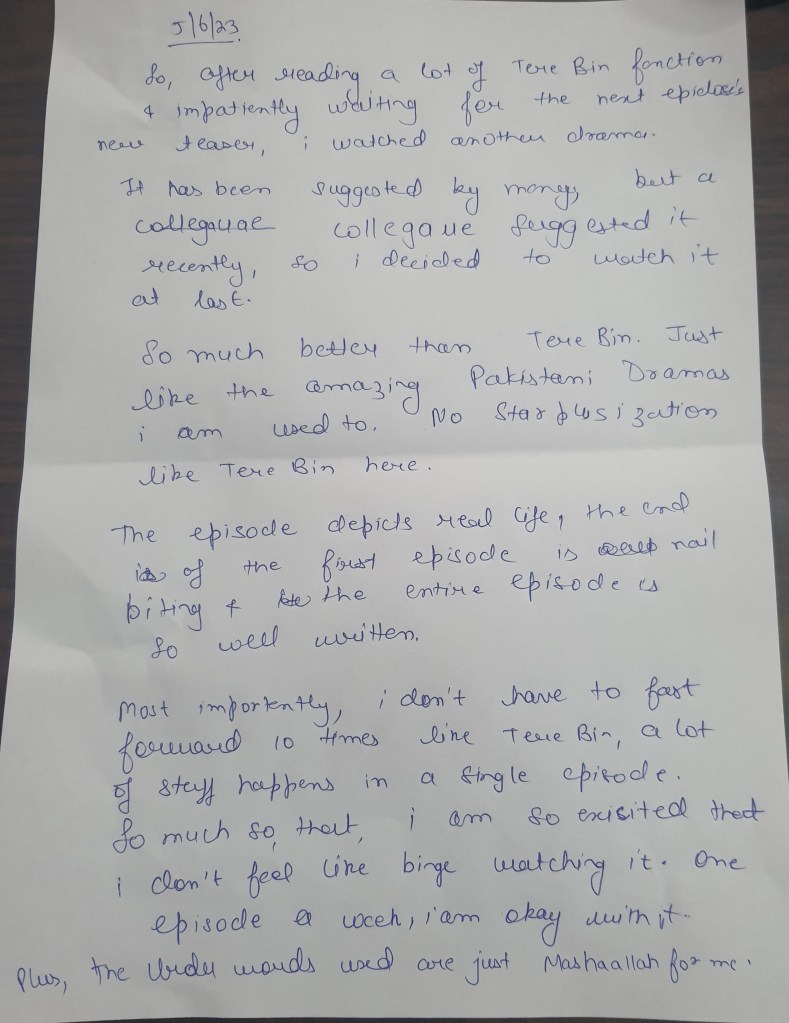 5/6/23
So, after reading a lot of Tere Bin fanction
& impatiently waiting for the next epidose's
new teaser, i watched another drama.
It has been suggested by money, but a
collegauae collegaue suggested it
recently, so i decided to watch it
at last.
So much better than Tere Bin. Just
like the amazing Pakistani Dramas
i am used to. No Starplusization
like Tere Bin here.
The episode depicts real life, the end
of the first episode is nail
biting & the entire episode is
so well written.
Most importently, i don't have to fast
forward 10 times like Tere Bin, a lot
of stuff happens in a single episode.
So much so, that, i am so exisited that
i don't feel like binge watching it. One
episode a week, i am okay with it.
Plus, the Urdu words used are just Mashaallah for me.